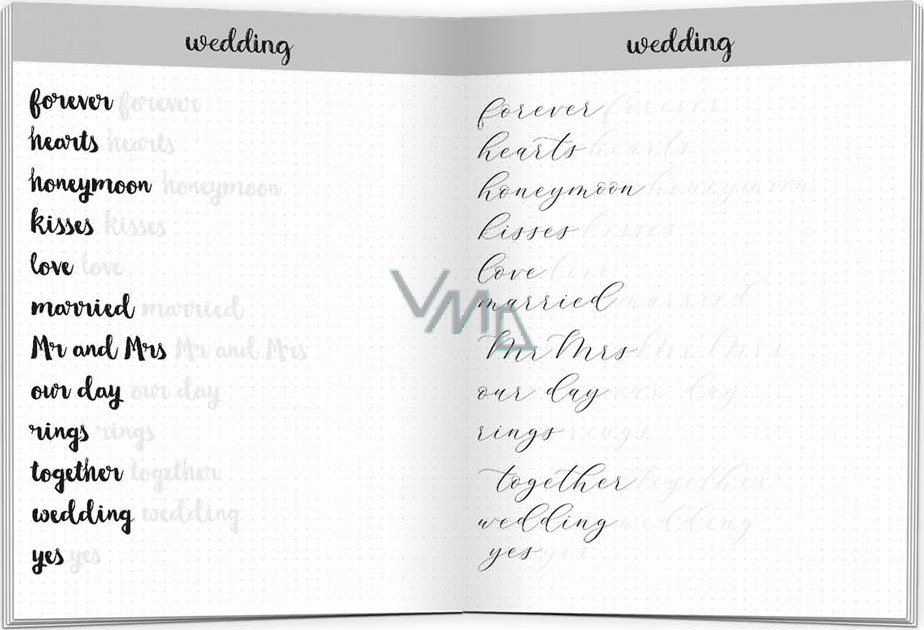 wedding
forever forever
hearts hearts
honeymoon honeymoon
kisses kisses
love love
married married
Mr and Mrs Mr and Mrs
our day our day
rings rings
together together
wedding wedding
yes yes
wedding
forever forever
hearts hearts
honeymoon honeymoon
kisses kisses
love love
married married
Mr Mrs Mrs Mrs
our day our day
rings rings
together together
wedding wedding
yes yes
VMD